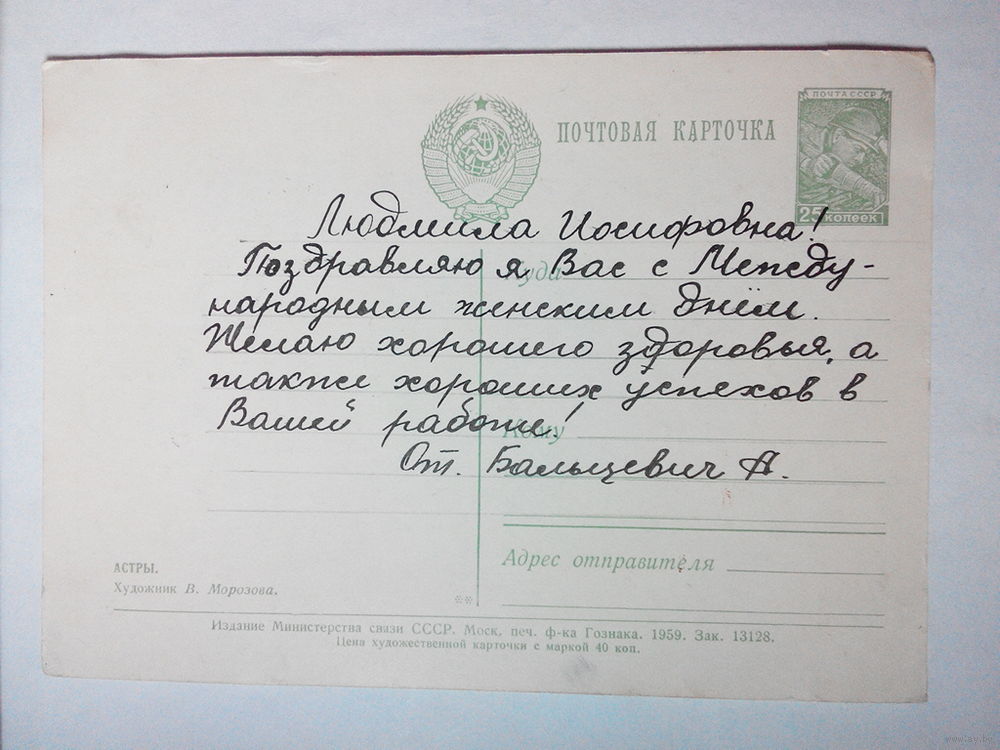 ПОЧТА СССР
ПОЧТОВАЯ КАРТОЧКА
25 КОПЕЕК
Людмила Иосифовна!
Поздравляю я Вас с Между-
народным женским днём.
Желаю хорошего здоровья, а
также хороших успехов в
Вашей работе!
От. Бальцевич А.
Куда
Кому
Адрес отправителя
АСТРЫ.
Художник В. Морозова.
Издание Министерства связи СССР. Моск. печ. ф-ка Гознака. 1959. Зак. 13128.
Цена художественной карточки с маркой 40 коп.
www.ay.by